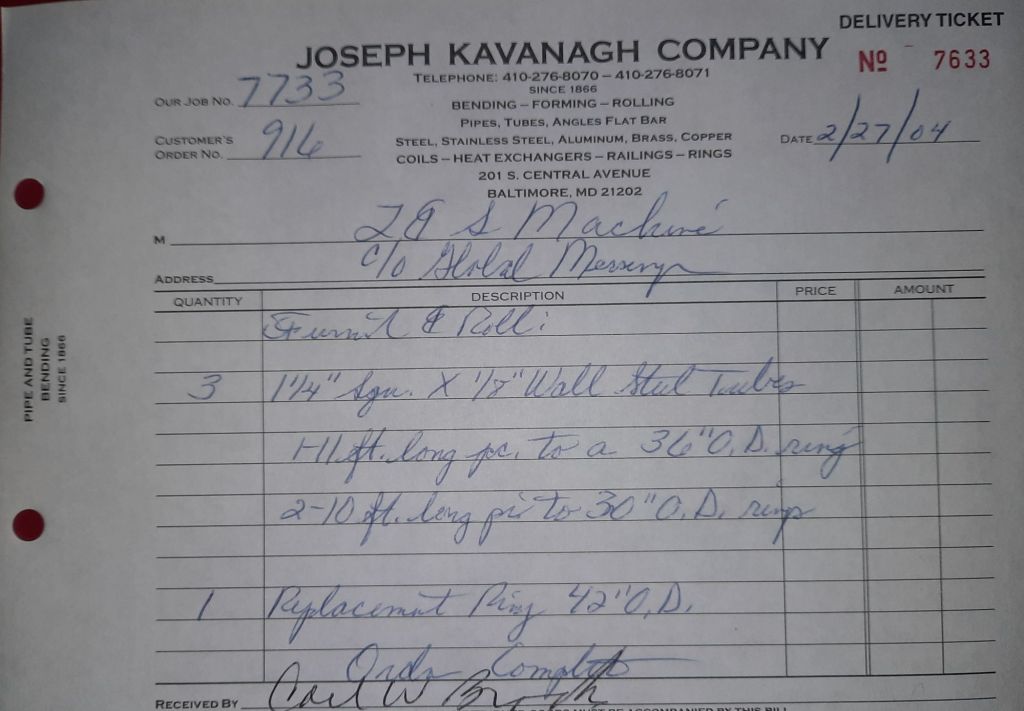 DELIVERY TICKET
JOSEPH KAVANAGH COMPANY
Nº 7633
TELEPHONE: 410-276-8070 – 410-276-8071
SINCE 1866
OUR JOB NO. 7733
BENDING – FORMING – ROLLING
PIPES, TUBES, ANGLES FLAT BAR
CUSTOMER'S
ORDER NO. 916
STEEL, STAINLESS STEEL, ALUMINUM, BRASS, COPPER
DATE 2/27/04
COILS – HEAT EXCHANGERS – RAILINGS – RINGS
201 S. CENTRAL AVENUE
BALTIMORE, MD 21202
M & S Machine
ADDRESS c/o Global
QUANTITY DESCRIPTION PRICE AMOUNT
& Roll:
3 1 1/4" Squ. X 1/8" Wall Steel Tubes
1-11 ft. long pc. to a 36" O.D. ring
2-10 ft. long to 30" O.D. rings
1 Replacement Ring 42" O.D.
Order Complete
RECEIVED BY Carl W
MUST BE ACCOMPANIED BY THIS BILL
PIPE AND TUBE
BENDING
SINCE 1866